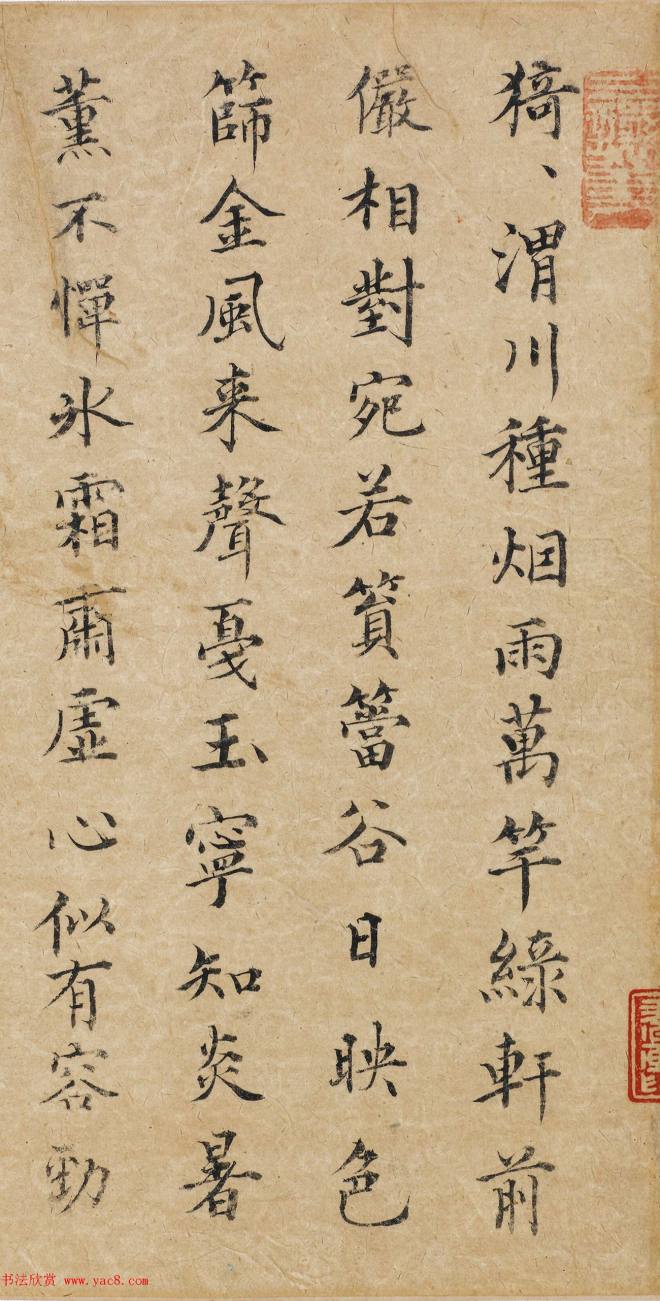 猗、渭川種烟雨萬竿綠軒前
儼相對宛若篔簹谷日映色
篩金風来聲戛玉寧知炎暑
薰不憚氷霜肅虚心似有容勁
书法欣赏 www.yac8.com